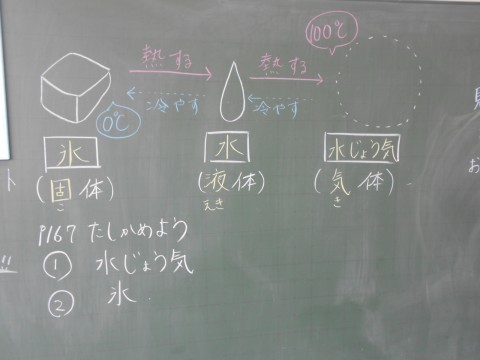 100℃
熱する 熱する
冷やす 冷やす
0℃
氷 水 水じょう気
(固体) (液体) (気体)
こ えき き
P167 たしかめよう
① 水じょう気
② 氷